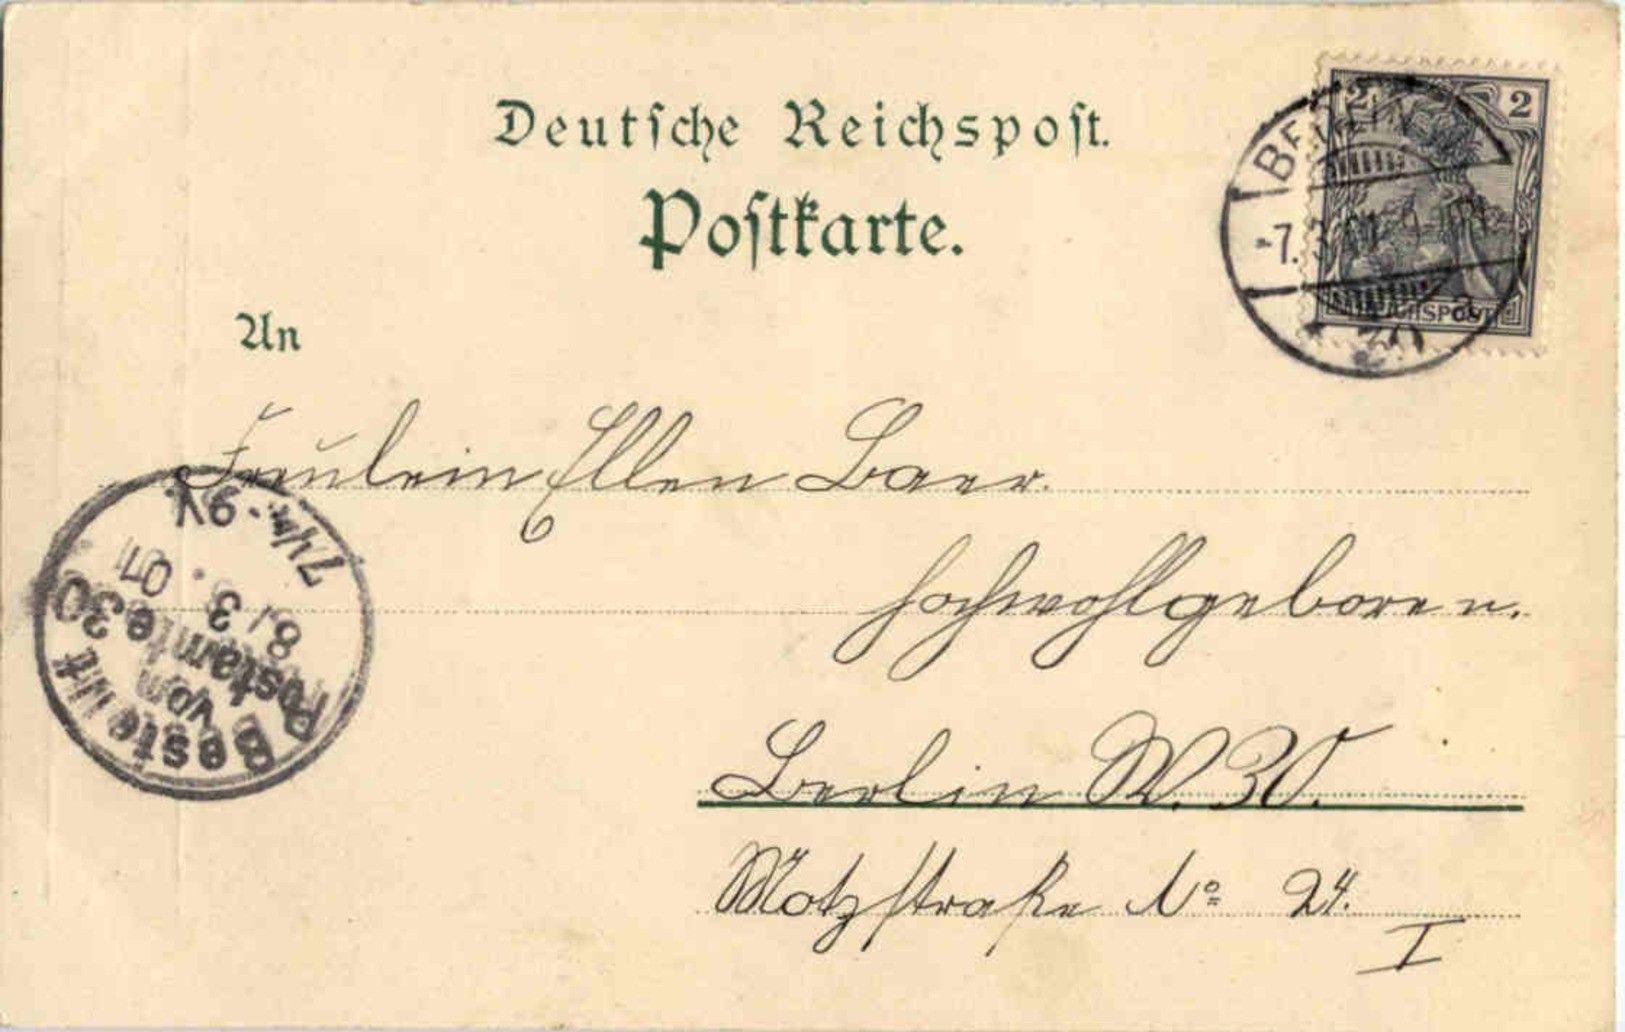 Deutsche Reichspost.
Postkarte.
2 2
BERLIN
-7.3.01
REICHSPOST
a
An
Fräulein Ellen Baer.
Hochwohlgeboren.
Berlin W. 30.
Motzstraße No 24.
I
Bestellt
vom
Postamte 30
8. 3. 01
7 1/4 - 9 V.